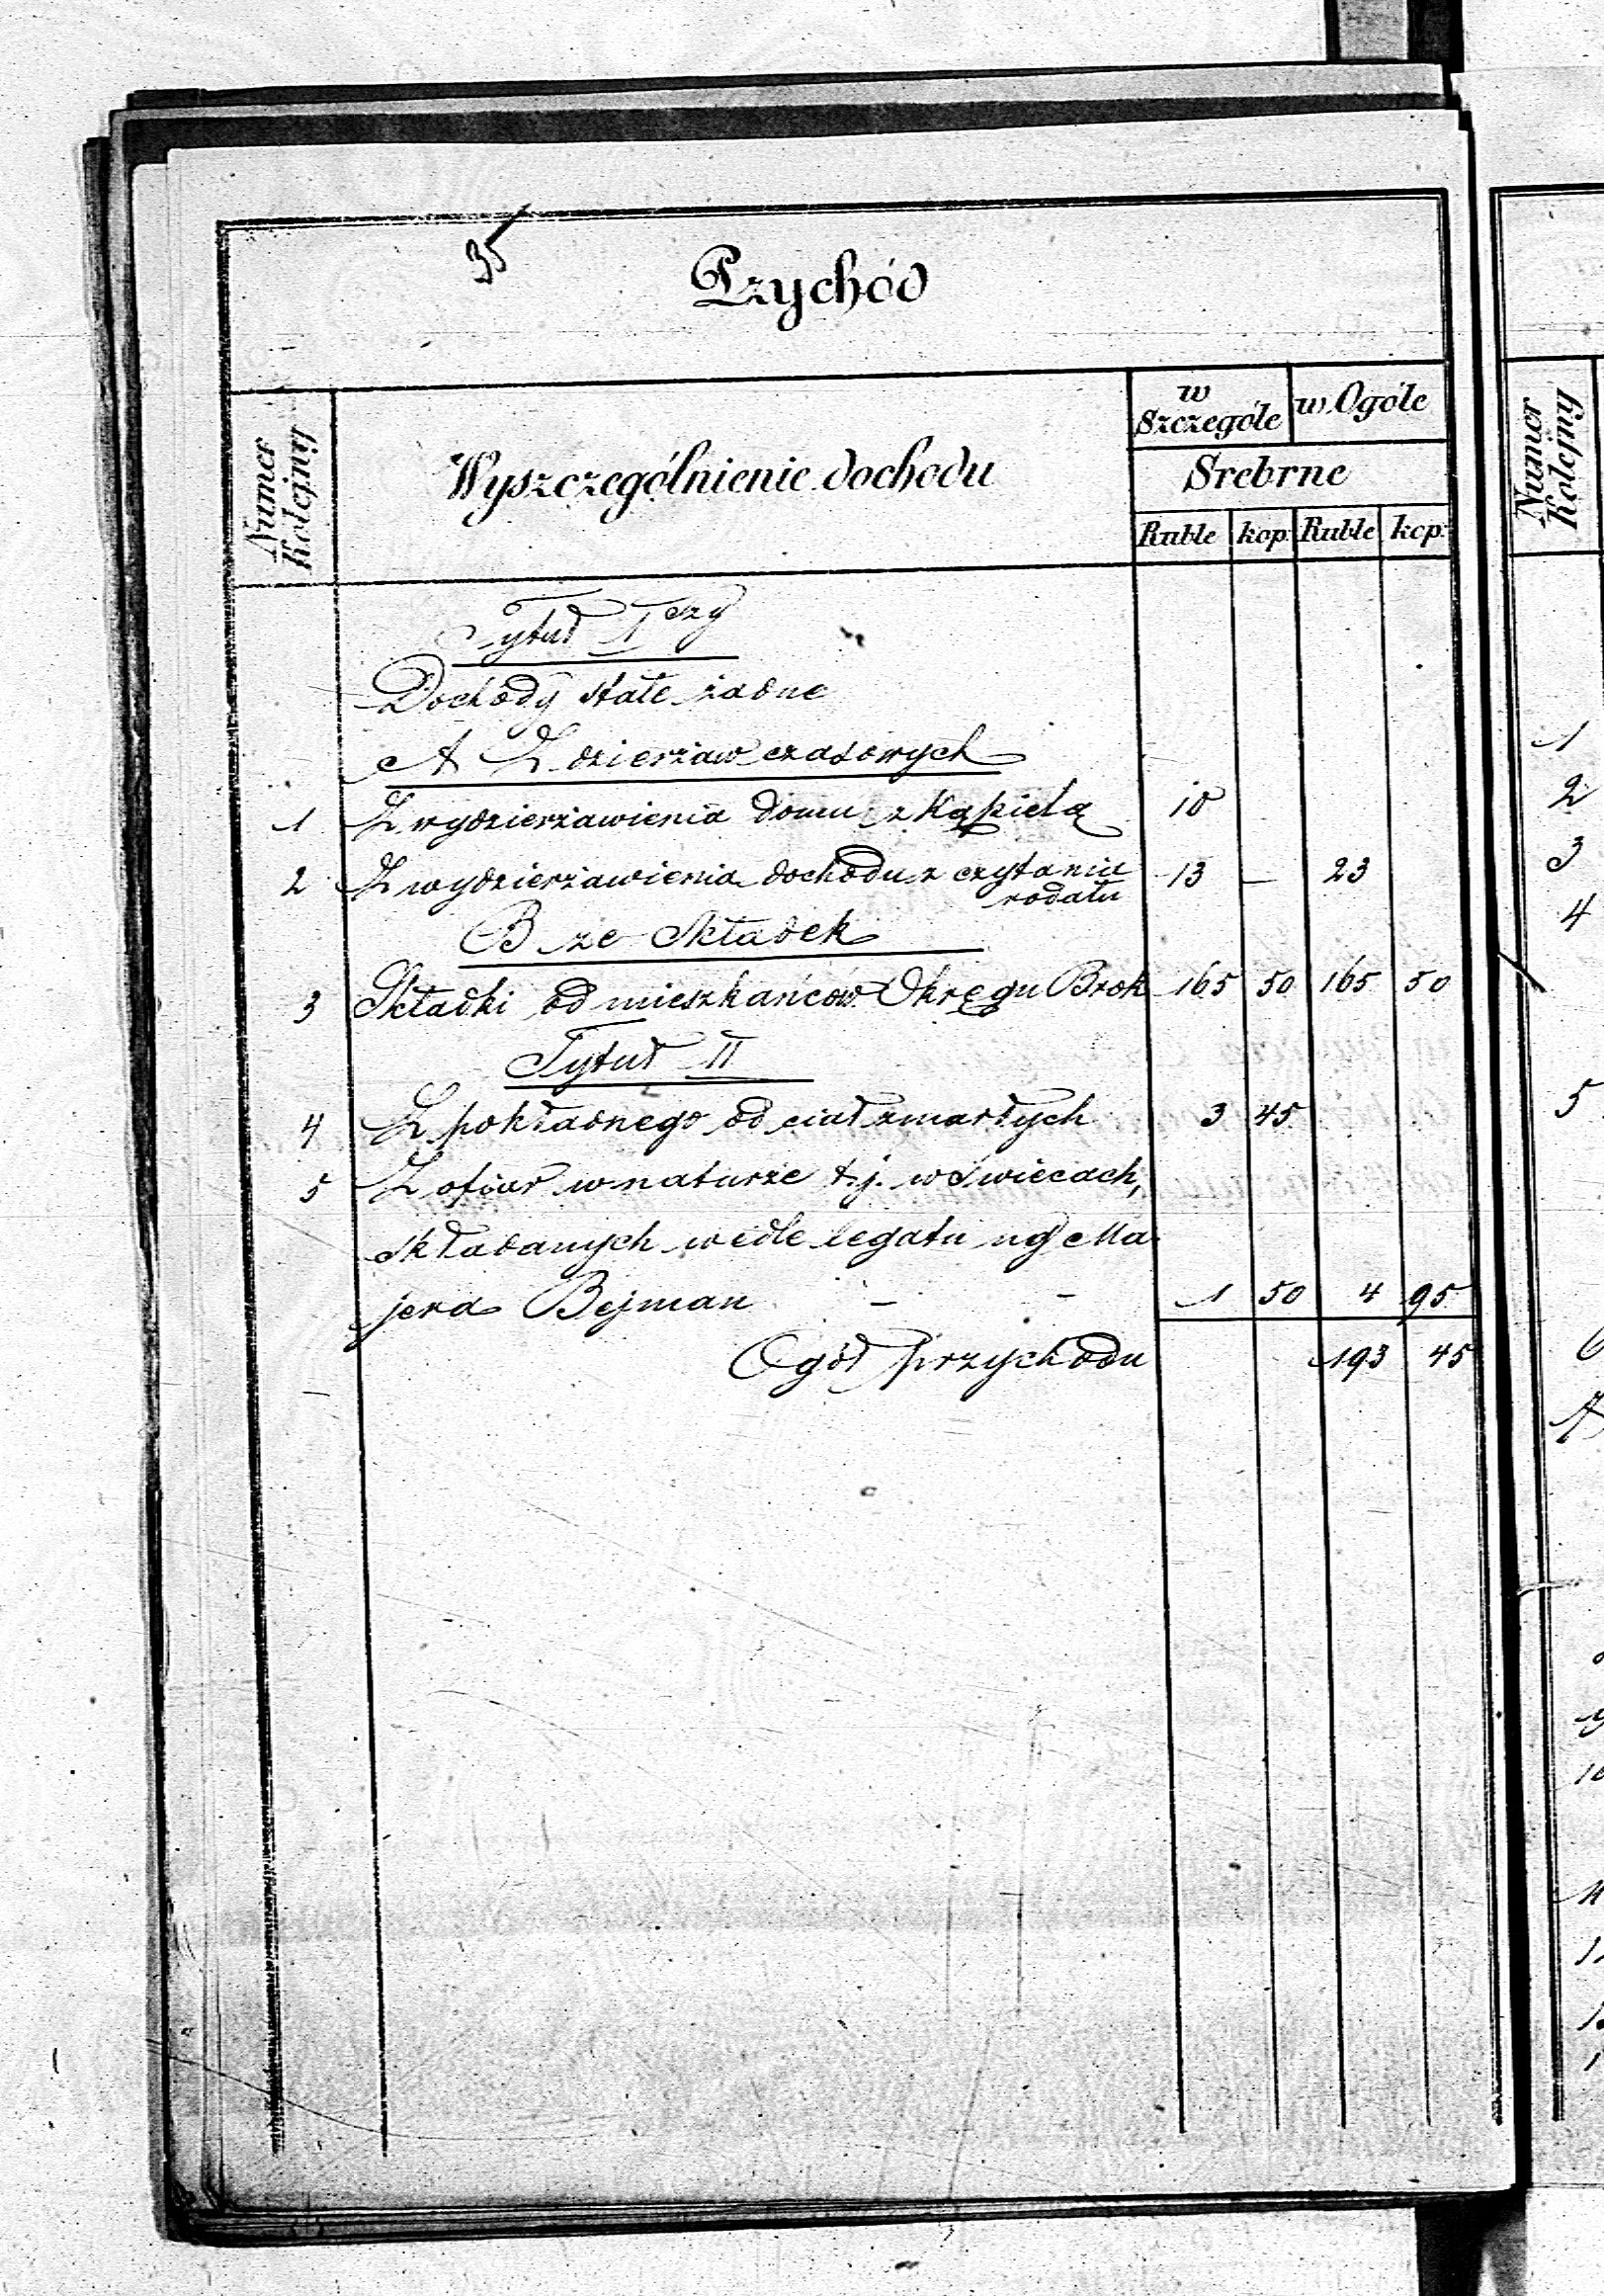 35
Przychód
Numer Kolejny
Wyszczególnienie dochodu
w Szczególe
w Ogóle
Srebrne
Ruble kop. Ruble kop.
Tytuł I szy
Dochody stałe żadne
A Z dzierżaw czasowych
1 Z wydzierżawienia domu z Kąpielą 10
2 Z wydzierżawienia dochodu z czytania 13 — 23
rodału
B ze Składek
3 Składki od mieszkańców Okręgu Brok 165 50 165 50
Tytuł II
4 Z pokładnego od ciał zmarłych 3 45
5 Z ofiar w naturze t.j. w Świecach,
składanych wedle legatu ng Ma
jera Bejman - - 1 50 4 95
Ogół przychodu 193 45
Numer Kolejny
1
2
3
4
5